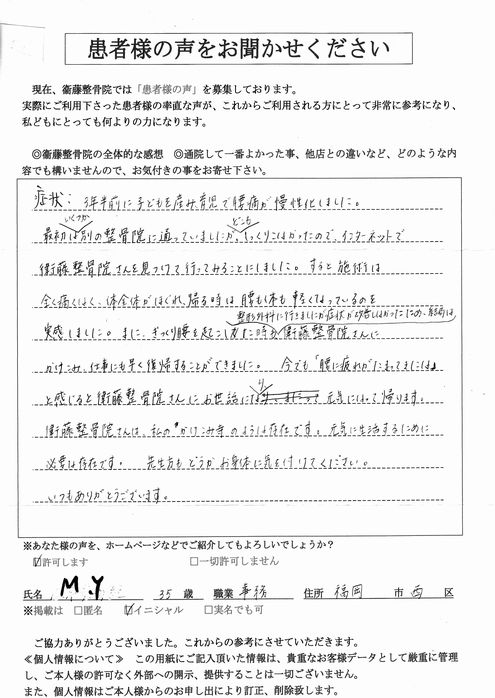 患者様の声をお聞かせください
現在、衞藤整骨院では「患者様の声」を募集しております。
実際にご利用下さった患者様の率直な声が、これからご利用される方にとって非常に参考になり、
私どもにとっても何よりの力になります。
◎衞藤整骨院の全体的な感想 ◎通院して一番よかった事、他店との違いなど、どのような内
容でも構いませんので、お気付きの事をお寄せ下さい。
症状: 3年半前に子どもを産み育児で腰痛が慢性化しました。
いくつか どこも
最初は別の整骨院に通っていましたが、しっくりこなかったので、インターネットで
衛藤整骨院さんを見つけて行ってみることにしました。すると施術は
全く痛くなく、体全体がほぐれ、帰る時は腰も体も軽くなっているのを
整形外科に行きましたが症状が改善しなかったため、結局は
実感しました。また、ぎっくり腰を起こした時も衛藤整骨院さんに
かけこみ、仕事にも早く復帰することができました。 今でも「腰に疲れがたまってきたな」
と感じると衛藤整骨院さんにお世話になり 元気になって帰ります。
衛藤整骨院さんは、私の"かけこみ寺"のような存在です。元気に生活するために
必要な存在です。 先生方もどうかお身体に気を付けてください。
いつもありがとうございます。
※あなた様の声を、ホームページなどでご紹介してもよろしいでしょうか?
☑許可します □一切許可しません
氏名 M.Y 35 歳 職業 事務 住所 福岡 市 西 区
※掲載は □匿名 ☑イニシャル □実名でも可
ご協力ありがとうございました。これからの参考にさせていただきます。
≪個人情報について≫ この用紙にご記入頂いた情報は、貴重なお客様データとして厳重に管理
し、ご本人様の許可なく外部への開示、提供することは一切ございません。
また、個人情報はご本人様からのお申し出により訂正、削除致します。